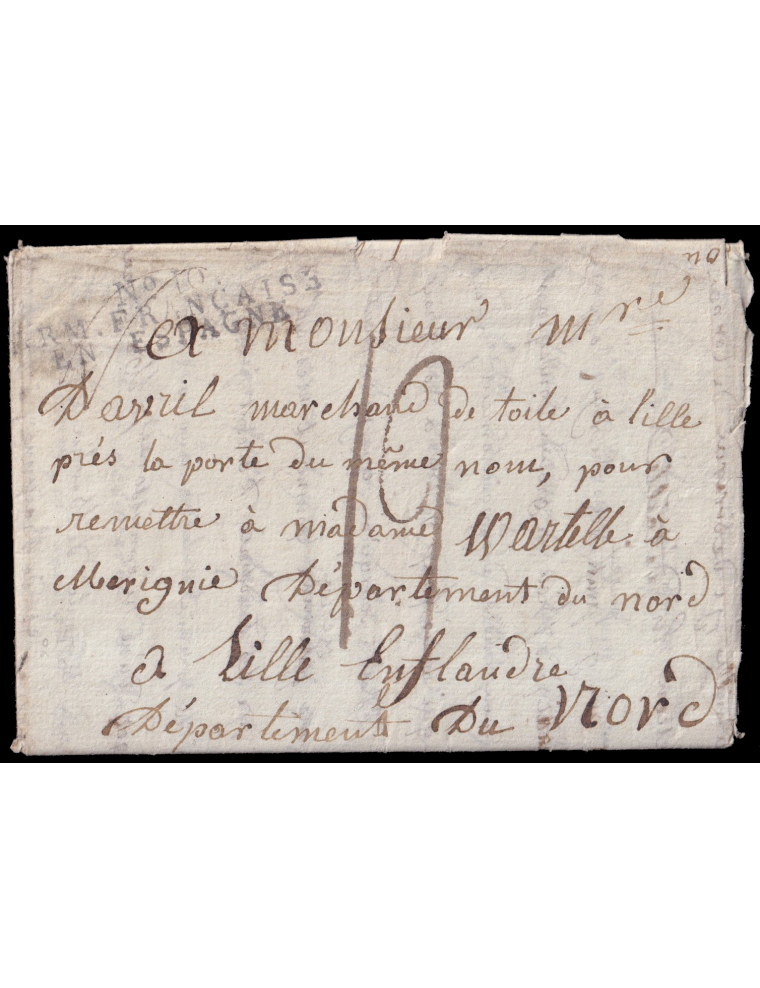 No 10
ARM. FRANÇAISE
EN ESPAGNE
no
A monsieur mre
Davril marchand de toile à lille
prés la porte du même nom, pour
remettre à madame Wartelle à
Merignie Département du nord
a Lille En flandre
Département Du Nord